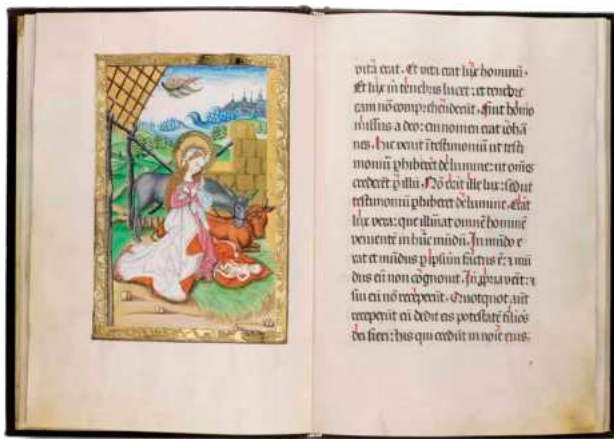 vitā erat. Et vita erat lux hominū.
Et lux in tenebris lucet: et tenebre
eam nō comprehenderūt. Fuit homo
missus a deo: cui nomen erat iohā
nes. Hic venit ī testimoniū ut testi
moniū phiberet de lumine: ut om̄es
crederēt p illū. Nō erat ille lux: sed ut
testimoniū phiberet de lumine. Erat
lux vera: que illuīat omnē hominē
veniente in hūc mūdū. In mūdo e
rat et mūdus p ipsum factus ē: ⁊ mū
dus eū non cognouit. In ꝓpria venit: ⁊
sui eū nō receperūt. Quotquot aūt
receperūt eū dedit eis potestatē filios
dei fieri: his qui credūt in noīe eius.